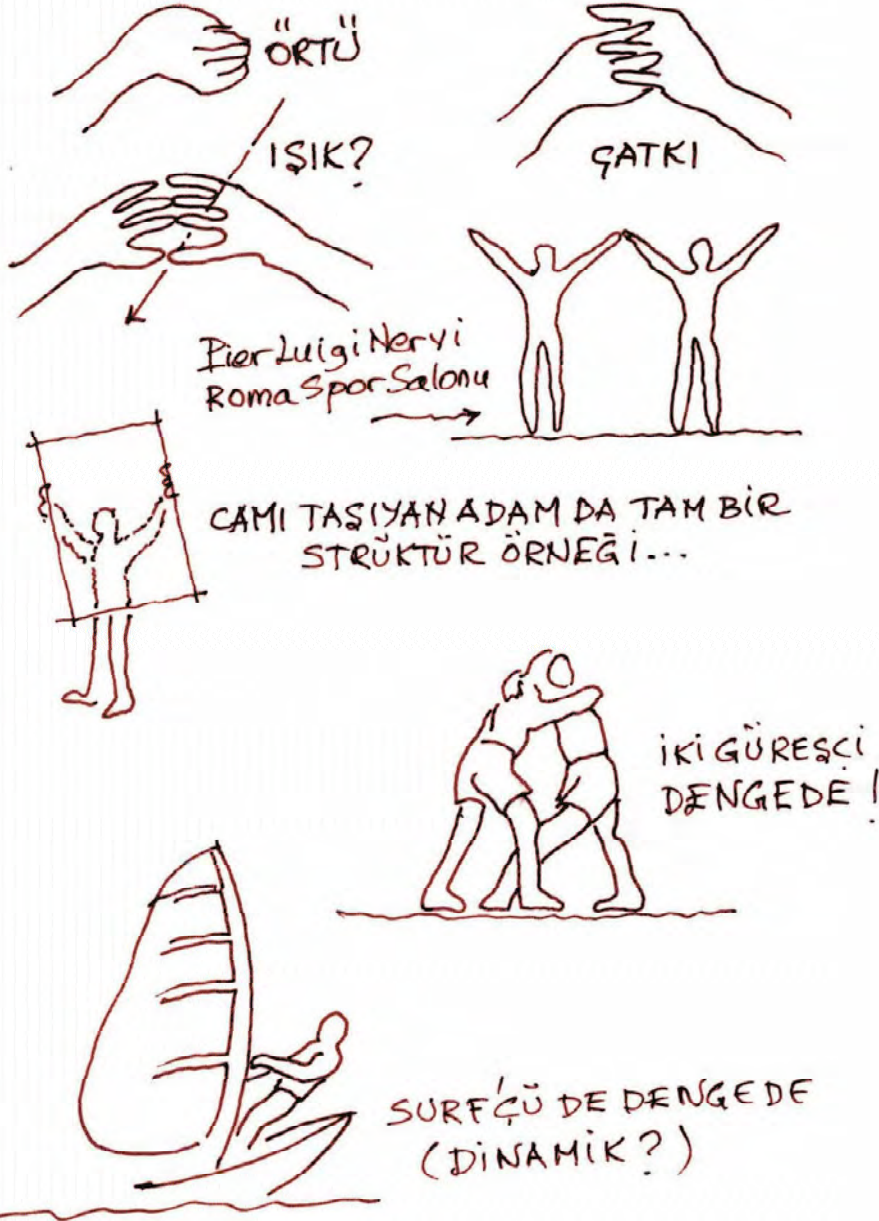 ÖRTÜ
IŞIK?
ÇATKI
Pier Luigi Nervi
Roma Spor Salonu
CAMI TAŞIYAN ADAM DA TAM BİR
STRÜKTÜR ÖRNEĞİ...
İKİ GÜREŞÇİ
DENGEDE!
SURF'ÇÜ DE DENGEDE
(DİNAMİK?)